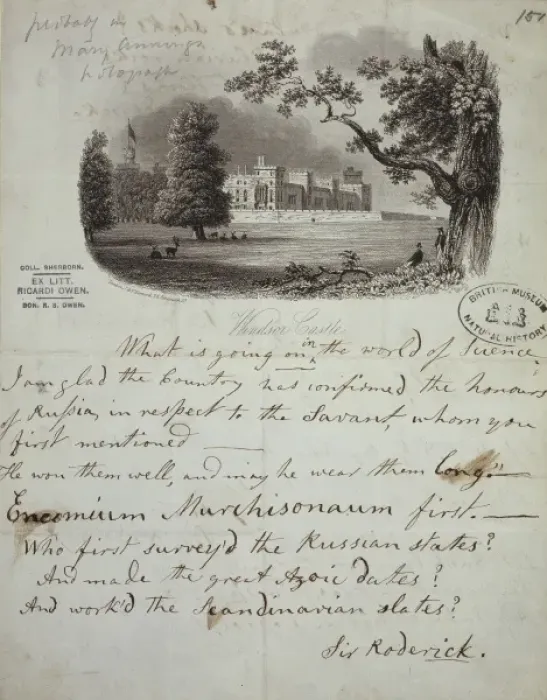 probably in
Mary Annings
holograph
151
COLL. SHERBORN.
EX LITT.
RICARDI OWEN.
DON. R. S. OWEN.
BRITISH MUSEUM
NATURAL HISTORY
Windsor Castle
What is going on in the world of Science.
I am glad the Country has confirmed the honours
of Russia, in respect to the Savant, whom you
first mentioned —
He won them well, and may he wear them long:—
Encomium Murchisonaum first. —
Who first survey'd the Russian states?
And made the great Azoic dates?
And work'd the Scandinavian slates?
Sir Roderick.